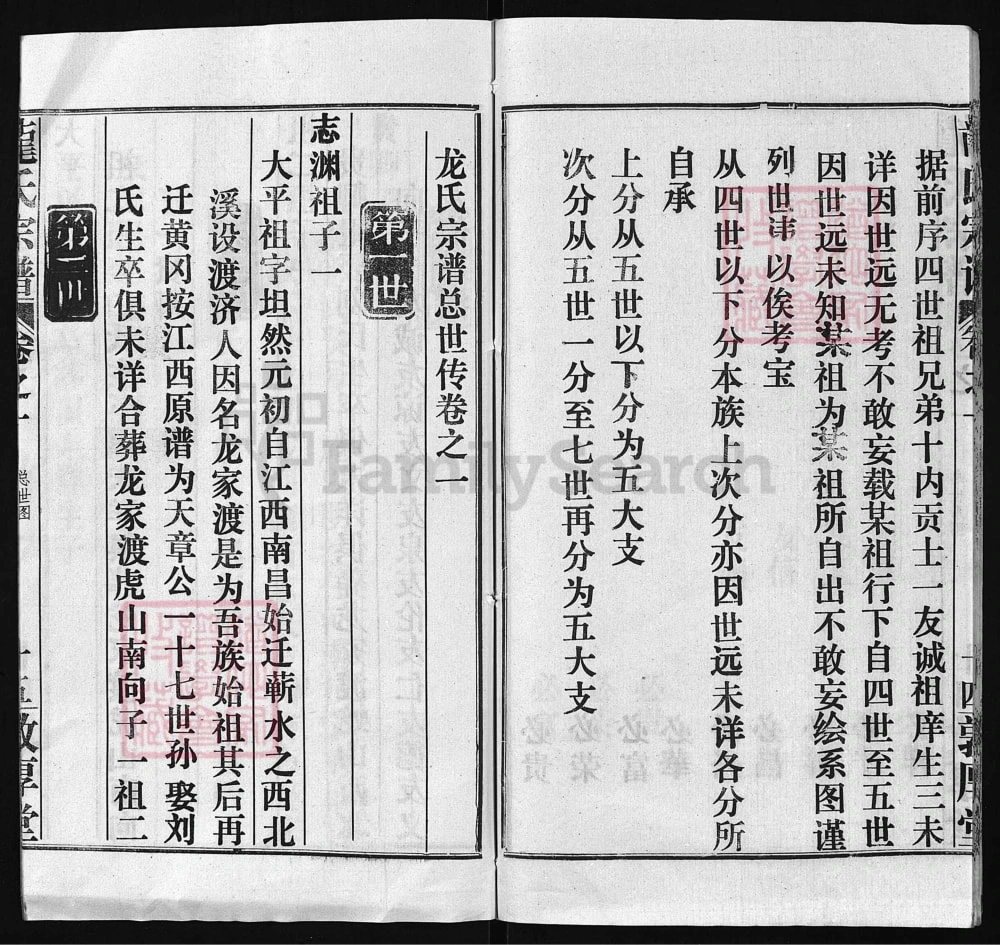 据前序四世祖兄弟十内贡士一友诚祖庠生三未
详因世远无考不敢妄载某祖行下自四世至五世
因世远未知某祖为某祖所自出不敢妄绘系图谨
列世讳以俟考宝
从四世以下分本族上次分亦因世远未详各分所
自承
上分从五世以下分为五大支
次分从五世一分至七世再分为五大支
十四 敦厚堂
龙氏宗谱总世传卷之一
第一世
志渊祖子一
大平祖字坦然元初自江西南昌始迁蕲水之西北
溪设渡济人因名龙家渡是为吾族始祖其后再
迁黄冈按江西原谱为天章公一十七世孙 娶刘
氏生卒俱未详合葬龙家渡虎山南向子一祖二
第二世
龍氏宗譜 卷之一 总世图 十五 敦厚堂
FamilySearch